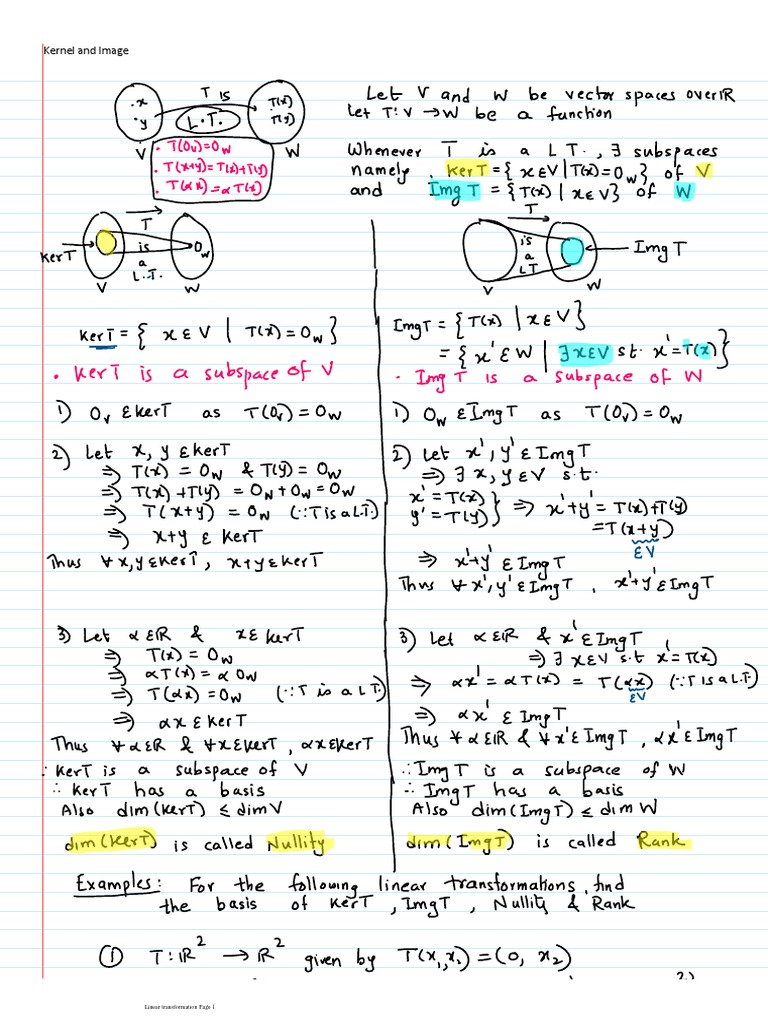 Kernel and Image
T is
.x
.y
L.T.
T(x)
T(y)
V
W
• T(0ᵥ)=0_W
• T(x+y)=T(x)+T(y)
• T(αx)=αT(x)
Let V and W be vector spaces over ℝ
Let T:V→W be a function
Whenever T is a L T., ∃ subspaces
namely, KerT={xεV|T(x)=0_W} of V
and Img T = {T(x) | xεV} of W
T
is
a
L.T.
KerT
0_W
V
W
KerT = { xεV | T(x)=0_W }
• KerT is a subspace of V
1) 0ᵥ εkerT as T(0ᵥ)=0_W
2) Let x, y εkerT
⇒ T(x) = 0_W & T(y) = 0_W
⇒ T(x)+T(y) = 0_W+0_W=0_W
⇒ T(x+y) = 0_W (∵T is a L.T.)
⇒ x+y ε kerT
Thus ∀x,yεkerT, x+yεkerT
3) Let αεℝ & xε kerT
⇒ T(x) = 0_W
⇒ αT(x) = α 0_W
⇒ T(αx)=0_W (∵T is a L.T.)
⇒ αx ε kerT
Thus ∀αεℝ & ∀xεkerT, αxεkerT
∴ KerT is a subspace of V
∴ KerT has a basis
Also dim(KerT) ≤ dimV
dim(KerT) is called Nullity
T
is
a
LT
ImgT
V
W
ImgT = {T(x) |xεV}
= {x'εW | ∃xεV s.t. x'=T(x)}
• ImgT is a subspace of W
1) 0_W εImgT as T(0ᵥ)=0_W
2) Let x', y' εImgT
⇒ ∃ x, yεV s.t.
x'=T(x)
y'=T(y)} ⇒ x'+y' = T(x)+T(y)
=T(x+y)
εV
⇒ x'+y' εImgT
Thus ∀ x', y'εImgT, x'+y'εImgT
3) Let αεℝ & x'εImgT
⇒∃ xεV s.t x'=T(x)
⇒ αx' = αT(x) = T(αx) (∵T is a L.T.)
εV
⇒ αx' ε ImgT
Thus ∀αεℝ & ∀x'εImgT, αx'εImgT
∴ImgT is a subspace of W
∴ ImgT has a basis
Also dim(ImgT) ≤ dimW
dim(ImgT) is called Rank
Examples: For the following linear transformations, find
the basis of KerT, ImgT, Nullity & Rank
① T:ℝ² → ℝ² given by T(x₁,x₂)=(0, x₂)
Linear transformation Page 1